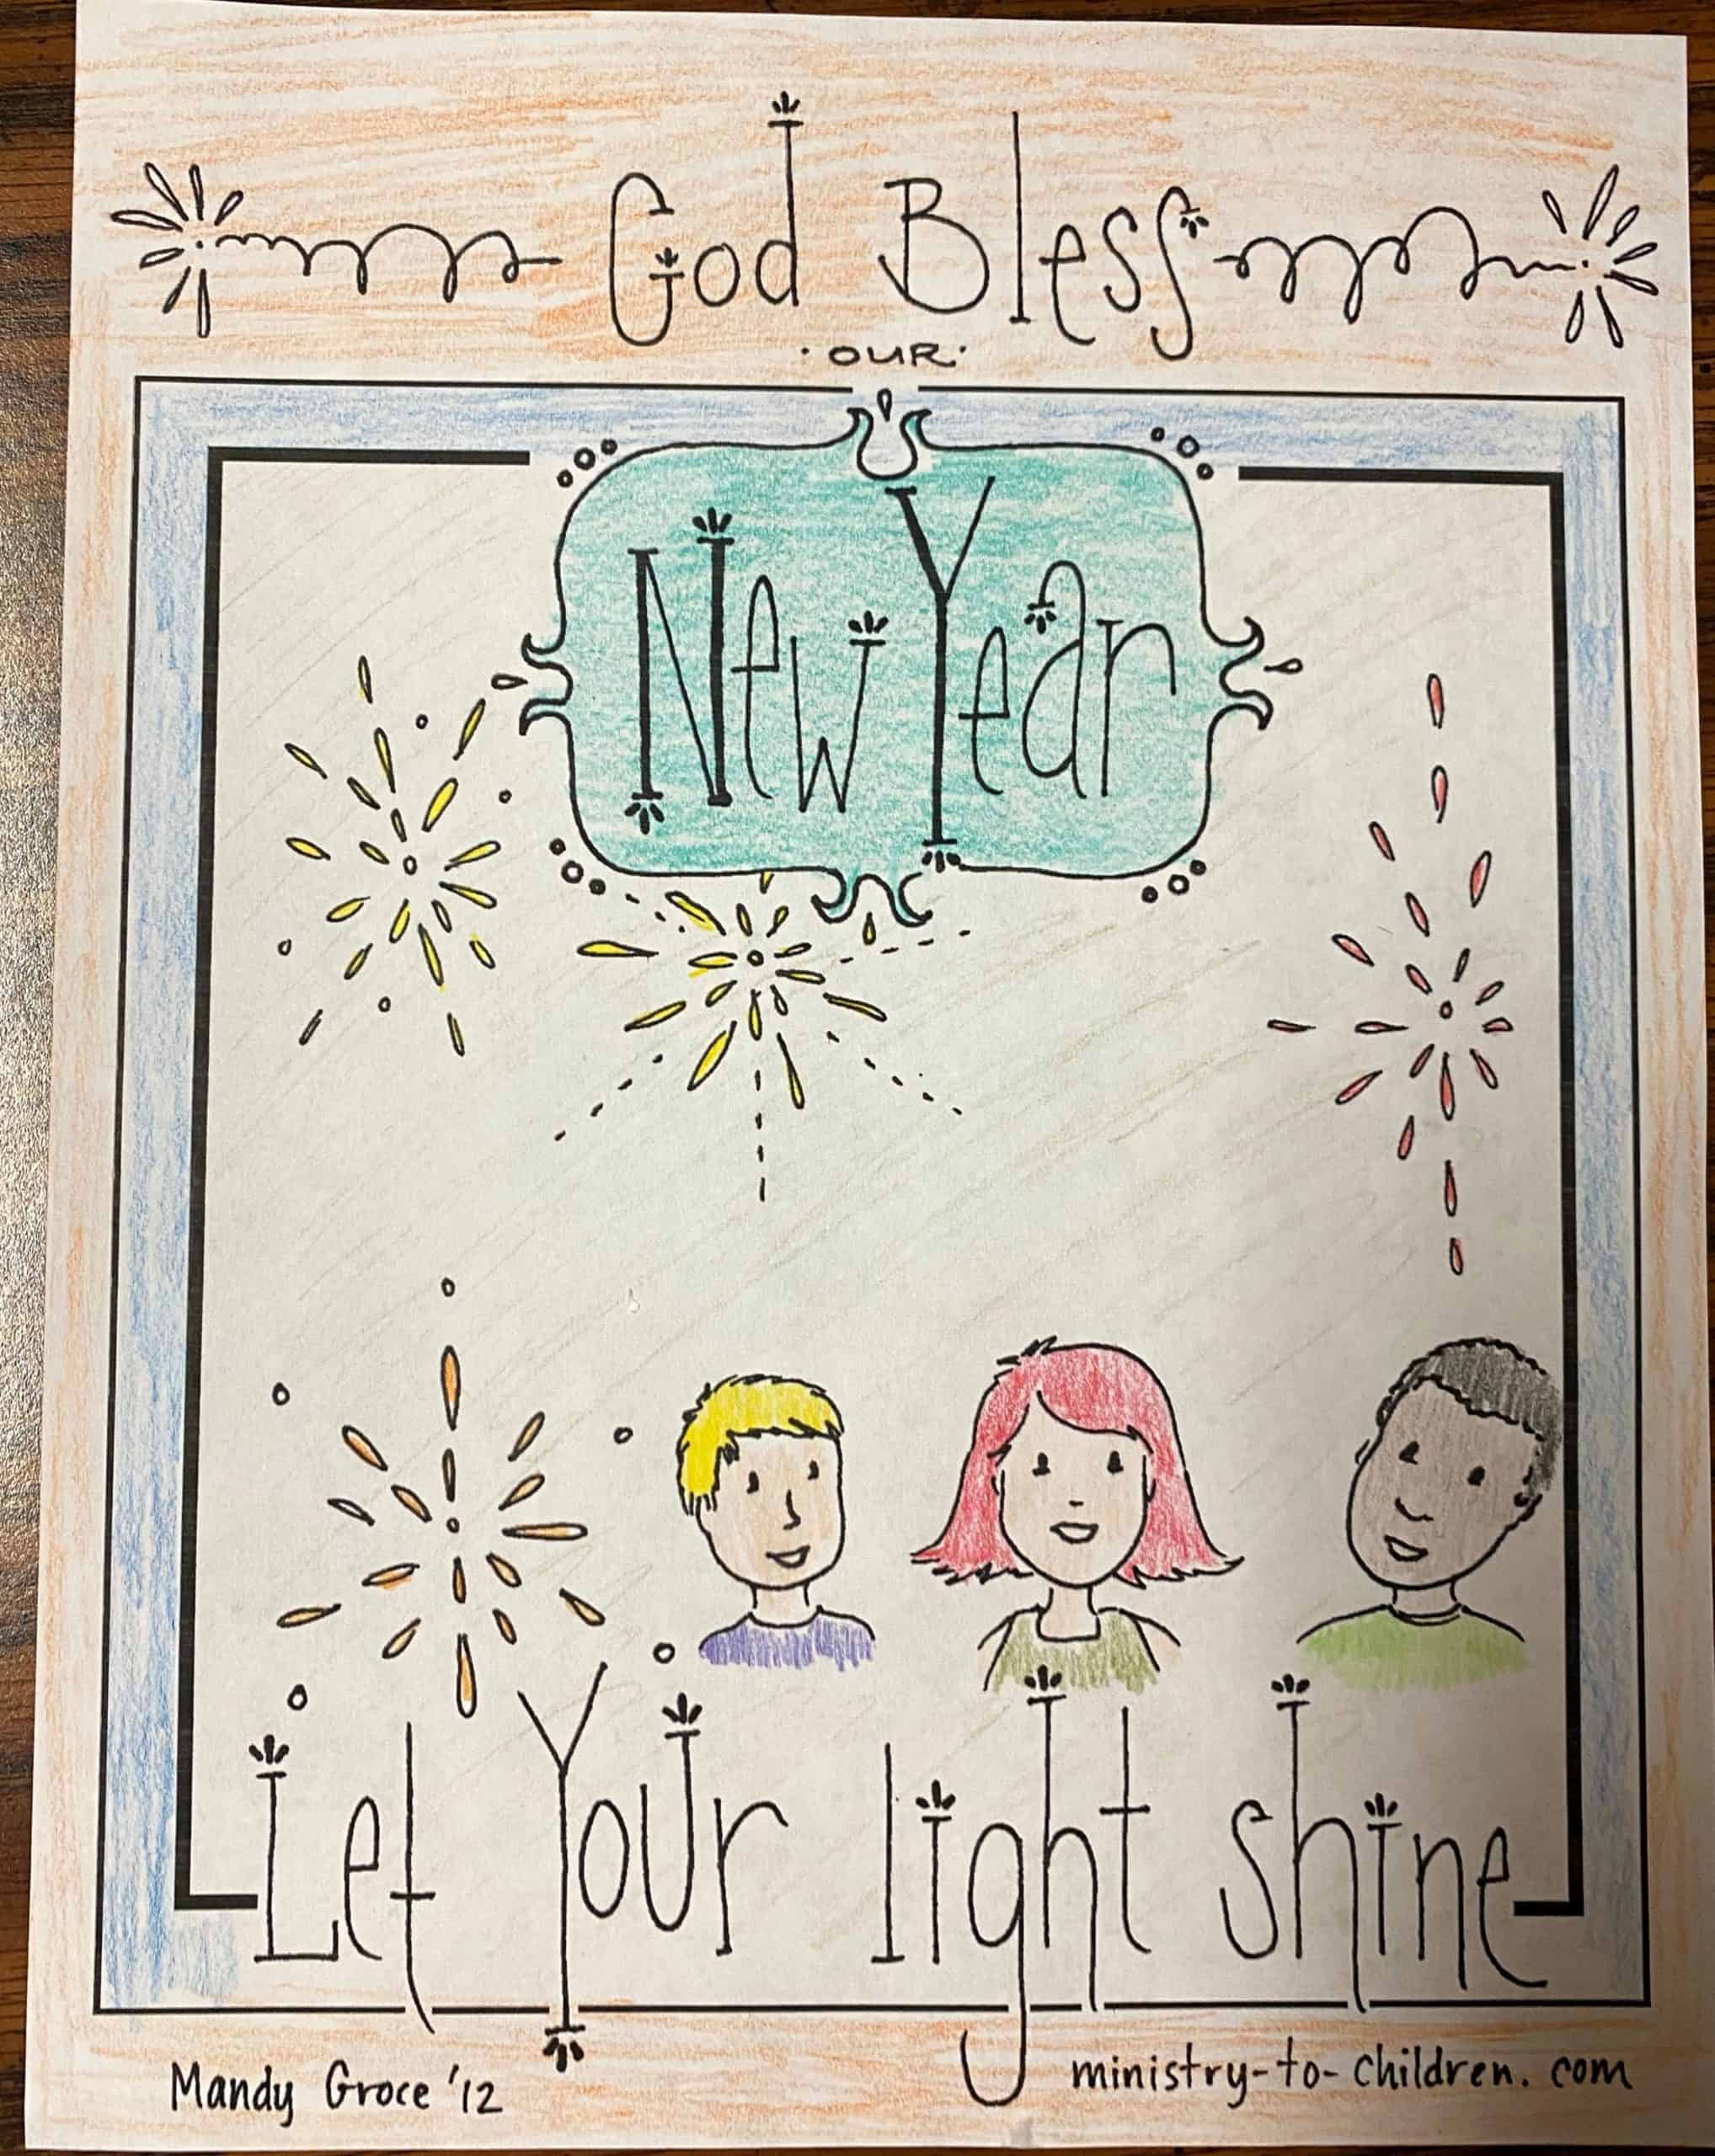 God Bless
· OUR ·
New Year
Let Your light shine
Mandy Groce '12
ministry-to-children.com